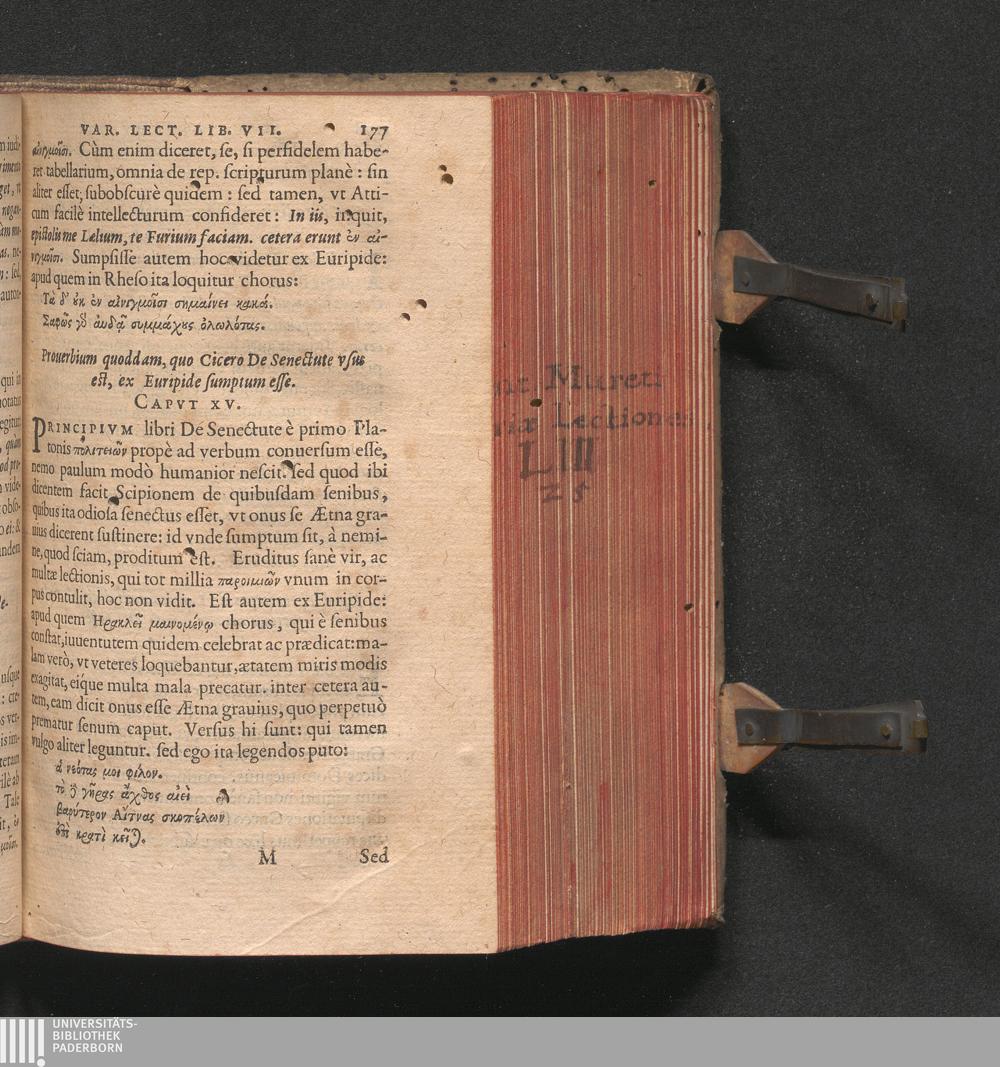 VAR. LECT. LIB. VII. 177
αἰνιγμοῖσι. Cùm enim diceret, se, si perfidelem habe-
ret tabellarium, omnia de rep. scripturum planè : sin
aliter esset, subobscurè quidem : sed tamen, vt Atti-
cum facilè intellecturum confideret : In iis, inquit,
epistolis me Lælium, te Furium faciam. cetera erunt ἐν αἰ-
νιγμοῖσι. Sumpsisse autem hoc videtur ex Euripide:
apud quem in Rheso ita loquitur chorus:
Τὰ δ' ἐκ ἐν αἰνιγμοῖσι σημαίνει κακά.
Σαφῶς γὸ αὐδᾷ συμμάχυς ὀλωλότας.
Prouerbium quoddam, quo Cicero De Senectute vsus
est, ex Euripide sumptum esse.
CAPVT XV.
PRINCIPIVM libri De Senectute è primo Pla-
tonis πολιτειῶν propè ad verbum conuersum esse,
nemo paulum modò humanior nescit. Sed quod ibi
dicentem facit Scipionem de quibusdam senibus,
quibus ita odiosa senectus esset, vt onus se Ætna gra-
uius dicerent sustinere: id vnde sumptum sit, à nemi-
ne, quod sciam, proditum est. Eruditus sanè vir, ac
multæ lectionis, qui tot millia παροιμιῶν vnum in cor-
pus contulit, hoc non vidit. Est autem ex Euripide:
apud quem Ηρακλεῖ μαινομένῳ chorus, qui è senibus
constat, iuuentutem quidem celebrat ac prædicat: ma-
lam verò, vt veteres loquebantur, ætatem miris modis
exagitat, eique multa mala precatur. inter cetera au-
tem, eam dicit onus esse Ætna grauius, quo perpetuò
prematur senum caput. Versus hi sunt: qui tamen
vulgo aliter leguntur. sed ego ita legendos puto:
ἁ νεότας μοι φίλον.
τὸ ϳ γῆρας ἄχθος αἰεὶ
βαρύτερον Αἴτνας σκοπέλων
ἐπὶ κρατὶ κεῖ).
M Sed
Mureti
Lectiones
LIII
25
UNIVERSITÄTS-
BIBLIOTHEK
PADERBORN